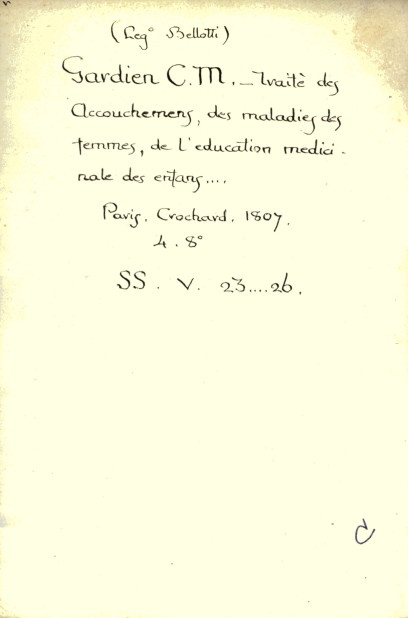 (Leg° Bellotti)
Gardien C.M. _ Traitè des
Accouchemens, des maladies des
femmes, de l'education medici-
nale des enfans....
Paris. Crochard. 1807.
4. 8°
SS. V. 23....26.
C